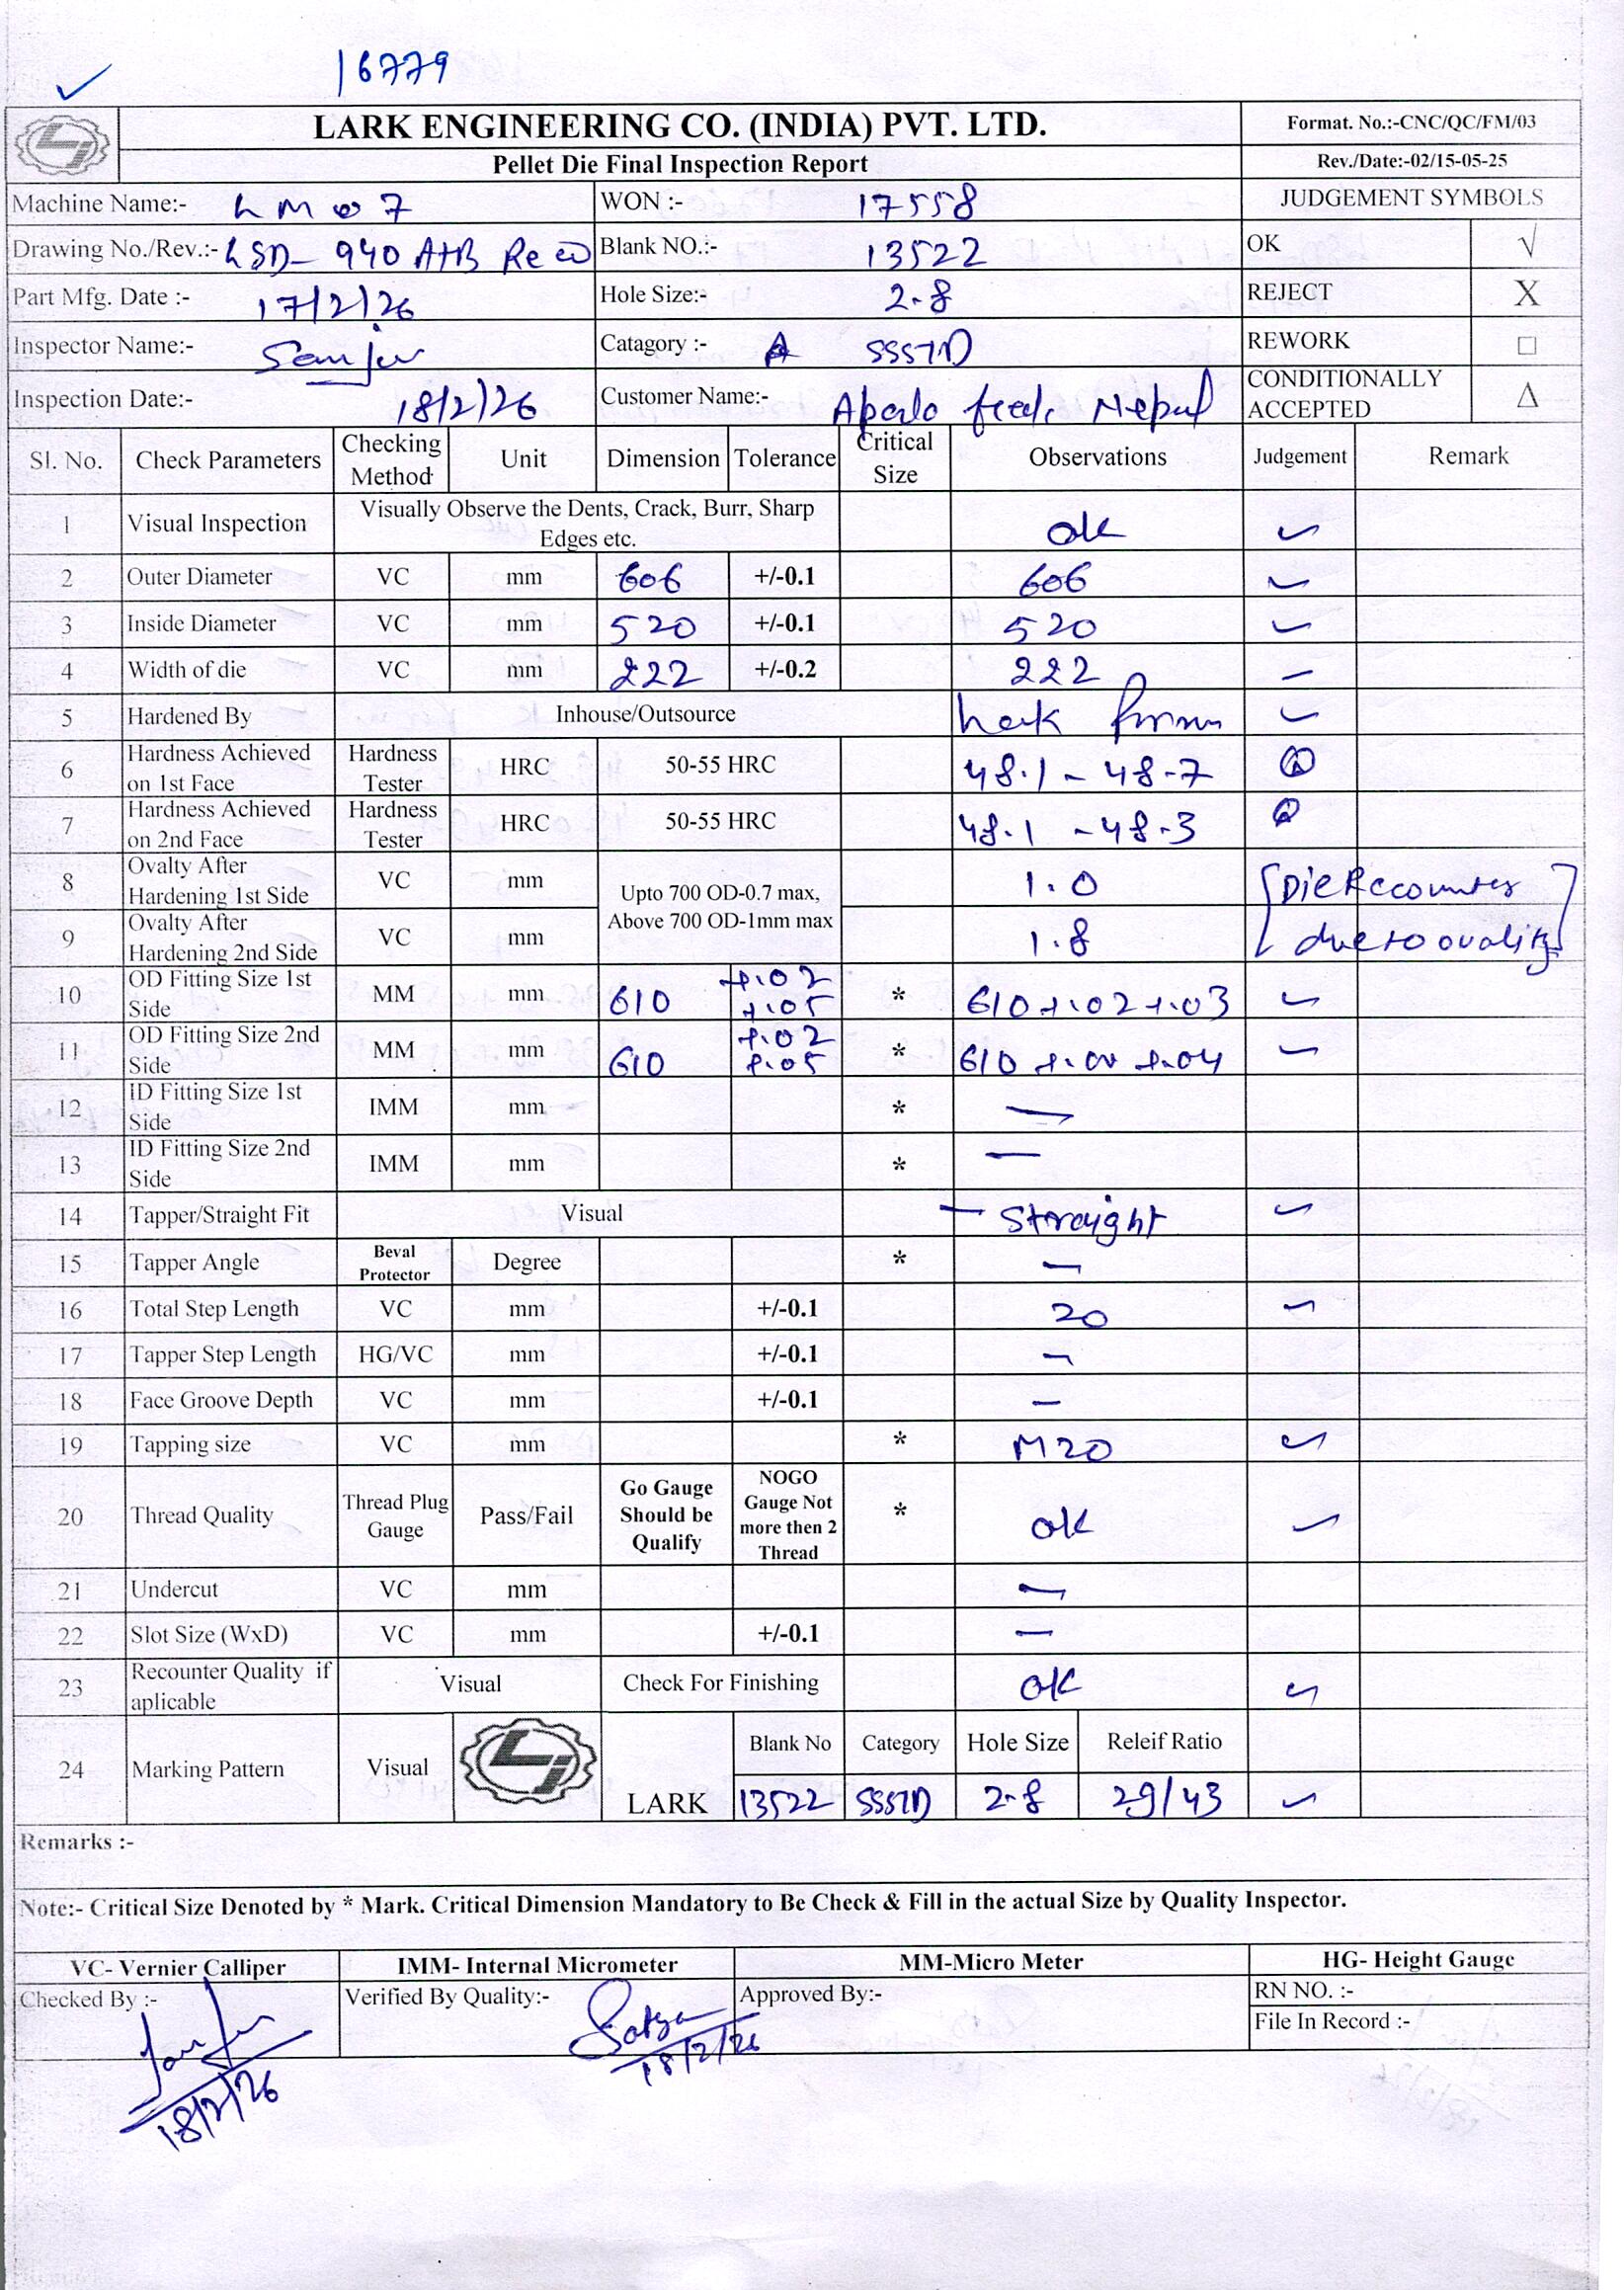 16779
LARK ENGINEERING CO. (INDIA) PVT. LTD.
Format. No.:-CNC/QC/FM/03
Pellet Die Final Inspection Report
Rev./Date:-02/15-05-25
Machine Name:- LM07 WON :- 17558 JUDGEMENT SYMBOLS
Drawing No./Rev.:- LSD- 940 A+B Blank NO.:- 13522 OK √
Part Mfg. Date :- 17/2/26 Hole Size:- 2.8 REJECT X
Inspector Name:- Sanjiv Catagory :- A SSSTD REWORK □
Inspection Date:- 18/2/26 Customer Name:- Nepal CONDITIONALLY ACCEPTED Δ
Sl. No. Check Parameters Checking Method Unit Dimension Tolerance Critical Size Observations Judgement Remark
1 Visual Inspection Visually Observe the Dents, Crack, Burr, Sharp Edges etc. ok ✓
2 Outer Diameter VC mm 606 +/-0.1 606 ✓
3 Inside Diameter VC mm 520 +/-0.1 520 ✓
4 Width of die VC mm 222 +/-0.2 222 ✓
5 Hardened By Inhouse/Outsource ✓
6 Hardness Achieved on 1st Face Hardness Tester HRC 50-55 HRC 48.1 - 48.7
7 Hardness Achieved on 2nd Face Hardness Tester HRC 50-55 HRC 48.1 - 48.3
8 Ovalty After Hardening 1st Side VC mm Upto 700 OD-0.7 max, Above 700 OD-1mm max 1.0 Die Recounter
9 Ovalty After Hardening 2nd Side VC mm 1.8 due to ovality
10 OD Fitting Size 1st Side MM mm 610 +.02 +.05 * 610 +.02 +.03 ✓
11 OD Fitting Size 2nd Side MM mm 610 +.02 +.05 * 610 +.04 ✓
12 ID Fitting Size 1st Side IMM mm * —
13 ID Fitting Size 2nd Side IMM mm * —
14 Tapper/Straight Fit Visual — Straight ✓
15 Tapper Angle Beval Protector Degree * —
16 Total Step Length VC mm +/-0.1 20 ✓
17 Tapper Step Length HG/VC mm +/-0.1 —
18 Face Groove Depth VC mm +/-0.1 —
19 Tapping size VC mm * M20 ✓
20 Thread Quality Thread Plug Gauge Pass/Fail Go Gauge Should be Qualify NOGO Gauge Not more then 2 Thread * ok ✓
21 Undercut VC mm —
22 Slot Size (WxD) VC mm +/-0.1 —
23 Recounter Quality if aplicable Visual Check For Finishing ok ✓
24 Marking Pattern Visual LARK Blank No Category Hole Size Releif Ratio
13522 SSSTD 2.8 29/43 ✓
Remarks :-
Note:- Critical Size Denoted by * Mark. Critical Dimension Mandatory to Be Check & Fill in the actual Size by Quality Inspector.
VC- Vernier Calliper IMM- Internal Micrometer MM-Micro Meter HG- Height Gauge
Checked By :- Verified By Quality:- Satya Approved By:- RN NO. :-
File In Record :-
18/2/26
18/2/26